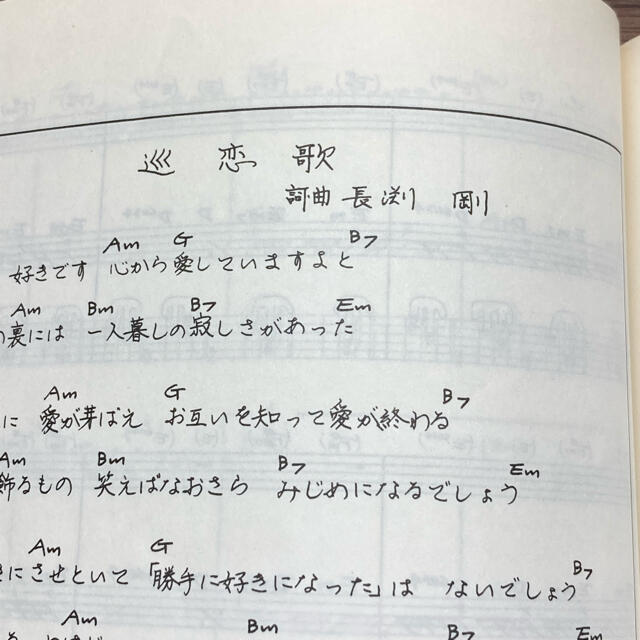 巡恋歌
詞曲 長渕 剛
Am G B7
好きです 心から愛していますよと
Am Bm B7 Em
裏には 一人暮しの寂しさがあった
Am G B7
に 愛が芽ばえ お互いを知って愛が終わる
Am Bm B7 Em
飾るもの 笑えばなおさら みじめになるでしょう
Am G B7
きにさせといて 「勝手に好きになった」は ないでしょう
Am Bm Em